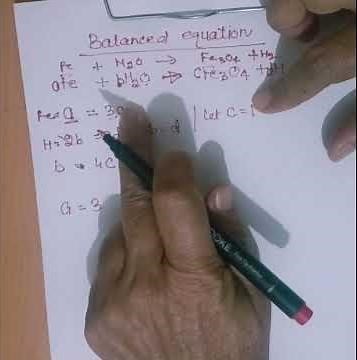 Balanced equation
Fe + H2O → Fe3O4 + H2
aFe + bH2O → CFe3O4 + dH
Fe a = 3C | Let C = 1
H = 2b = d
b = 4C
a = 3